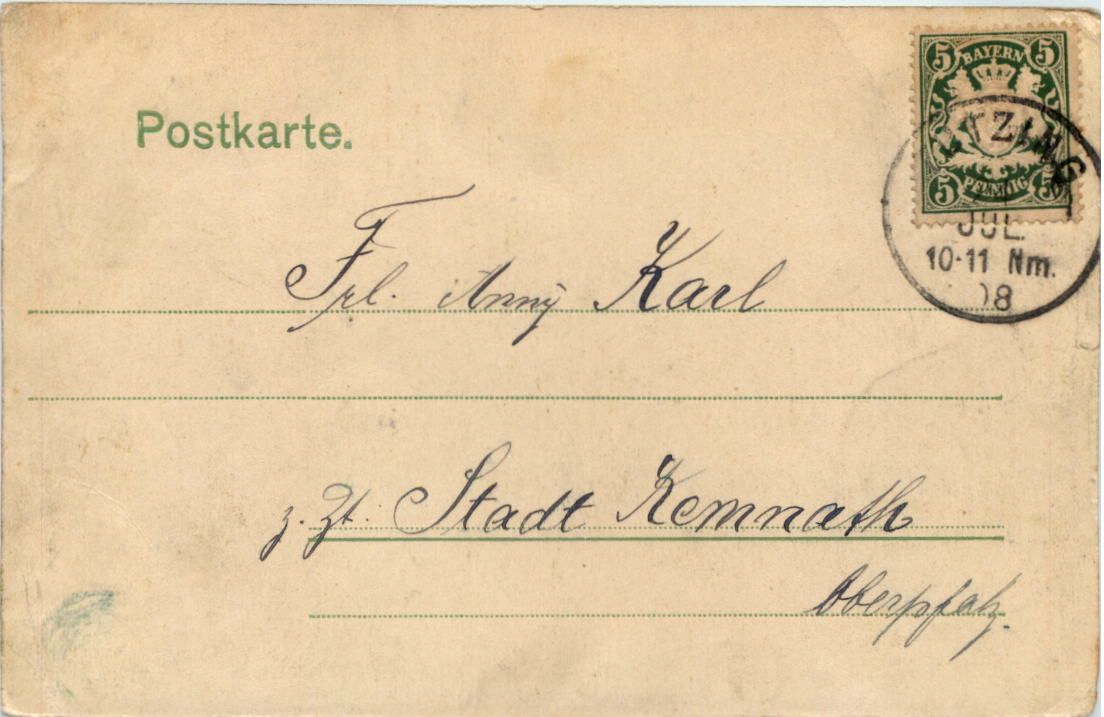 Postkarte.
5 BAYERN 5
5 PFENNIG 5
JUL.
10-11 Nm.
08
Frl. Anny Karl
z. Zt. Stadt Kemnath
Oberpfalz.